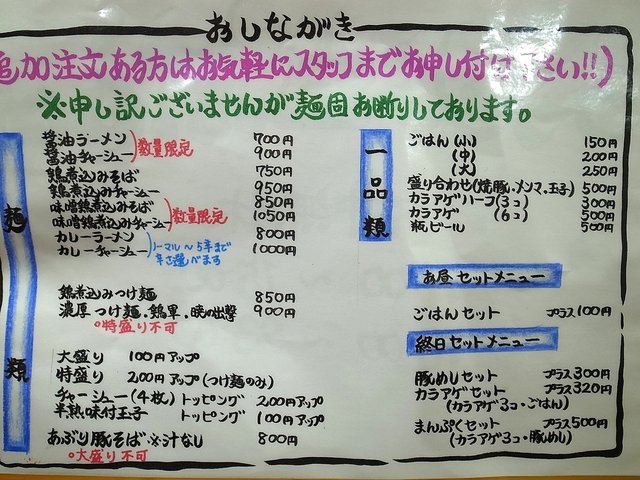 おしながき
追加注文ある方はお気軽にスタッフまでお申し付け下さい!!)
※申し訳ございませんが麺固お断りしております。
麺類
醤油ラーメン 700円
醤油チャーシュー 900円
数量限定
鶏煮込みそば 750円
鶏煮込みチャーシュー 950円
味噌鶏煮込みそば 850円
味噌鶏煮込みチャーシュー 1050円
数量限定
カレーラーメン 800円
カレーチャーシュー 1000円
ノーマル〜5辛まで
辛さ選べます
鶏煮込みつけ麺 850円
濃厚つけ麺.鶏軍.暁の出撃 900円
○特盛り不可
大盛り 100円アップ
特盛り 200円アップ(つけ麺のみ)
チャーシュー(4枚)トッピング 200円アップ
半熟味付玉子 トッピング 100円アップ
あぶり豚そば※汁なし 800円
○大盛り不可
一品類
ごはん(小) 150円
(中) 200円
(大) 250円
盛り合わせ(焼豚.メンマ.玉子) 500円
カラアゲハーフ(3コ) 300円
カラアゲ (6コ) 500円
瓶ビール 500円
お昼セットメニュー
ごはんセット プラス100円
終日セットメニュー
豚めしセット プラス300円
カラアゲセット プラス320円
(カラアゲ3コ・ごはん)
まんぷくセット プラス500円
(カラアゲ3コ・豚めし)